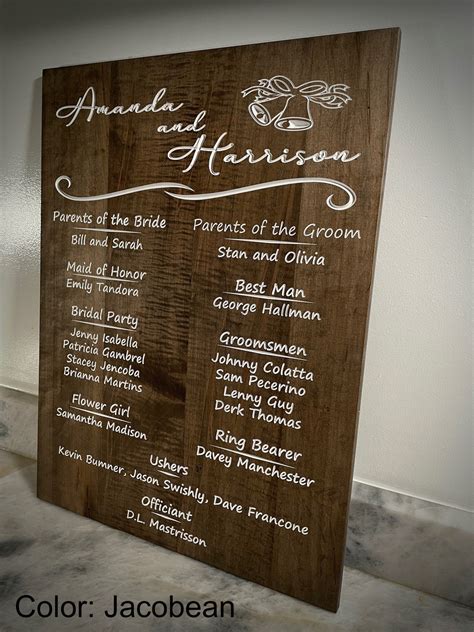 Amanda
and
Harrison
Parents of the Bride
Bill and Sarah
Maid of Honor
Emily Tandora
Bridal Party
Jenny Isabella
Patricia Gambrel
Stacey Jencoba
Brianna Martins
Flower Girl
Samantha Madison
Parents of the Groom
Stan and Olivia
Best Man
George Hallman
Groomsmen
Johnny Colatta
Sam Pecerino
Lenny Guy
Derk Thomas
Ring Bearer
Davey Manchester
Ushers
Kevin Bumner, Jason Swishly, Dave Francone
Officiant
D.L. Mastrisson
Color: Jacobean